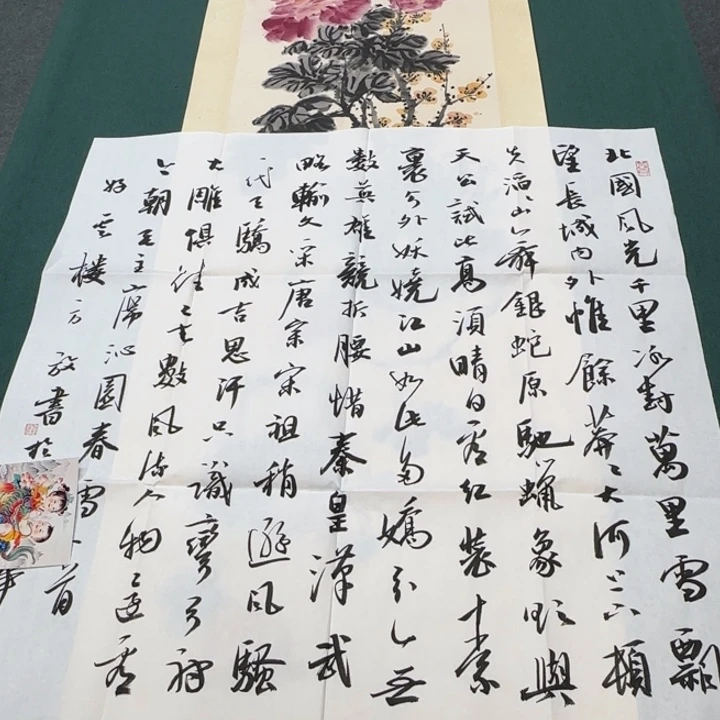 北國風光千里冰封萬里雪飄
望長城内外惟餘莽〻大河上下頓
失滔〻山舞銀蛇原馳蠟象欲與
天公試比高須晴日看紅裝素
裹分外妖嬈江山如此多嬌引無
數英雄競折腰惜秦皇漢武
略輸文采唐宗宋祖稍遜風騷
一代天驕成吉思汗只識彎弓射
大雕俱往矣數風流人物還看
今朝毛主席沁園春雪一首
好雲樓方放書於